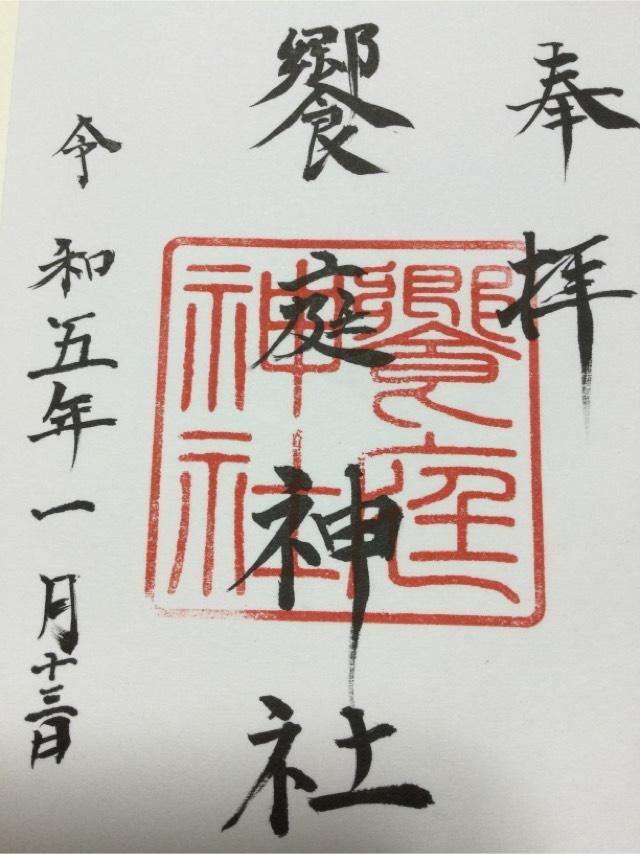 奉拝
饗庭神社
饗庭神社
令和五年一月十三日